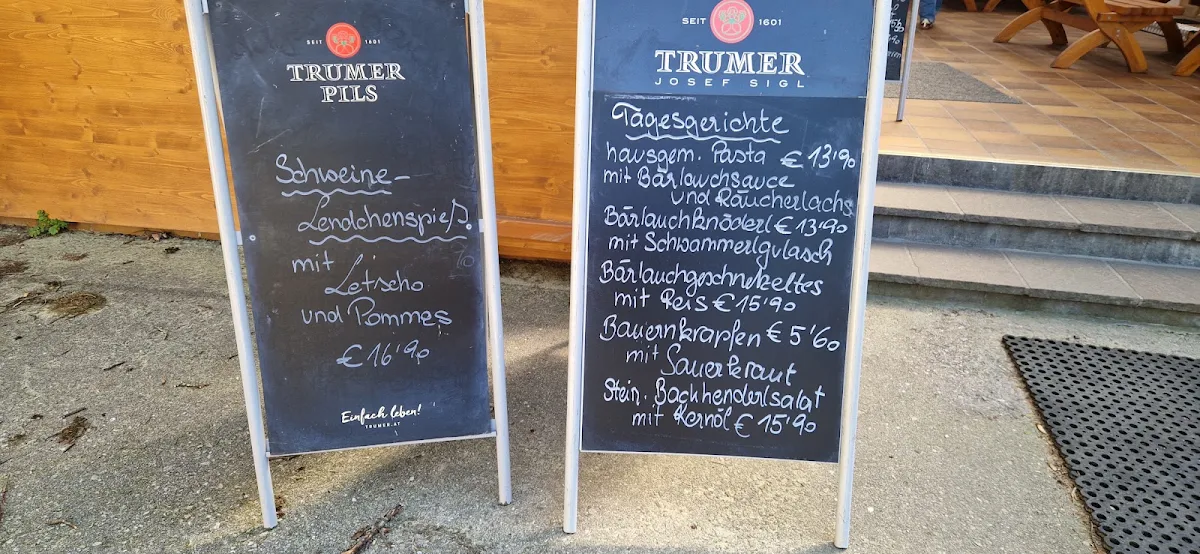 SEIT 1601
TRUMER
PILS
Schweine-
Lendchenspieß
mit
Letscho
und Pommes
€ 16'90
Einfach leben!
TRUMER.AT
SEIT 1601
TRUMER
JOSEF SIGL
Tagesgerichte
hausgem. Pasta € 13'90
mit Bärlauchsauce
und Räucherlachs
Bärlauchknöderl € 13'90
mit Schwammerlgulasch
Bärlauchgeschnetzeltes
mit Reis € 15'90
Bauernkrapfen € 5'60
mit Sauerkraut
Stein. Backhenderlsalat
mit Kernöl € 15'90